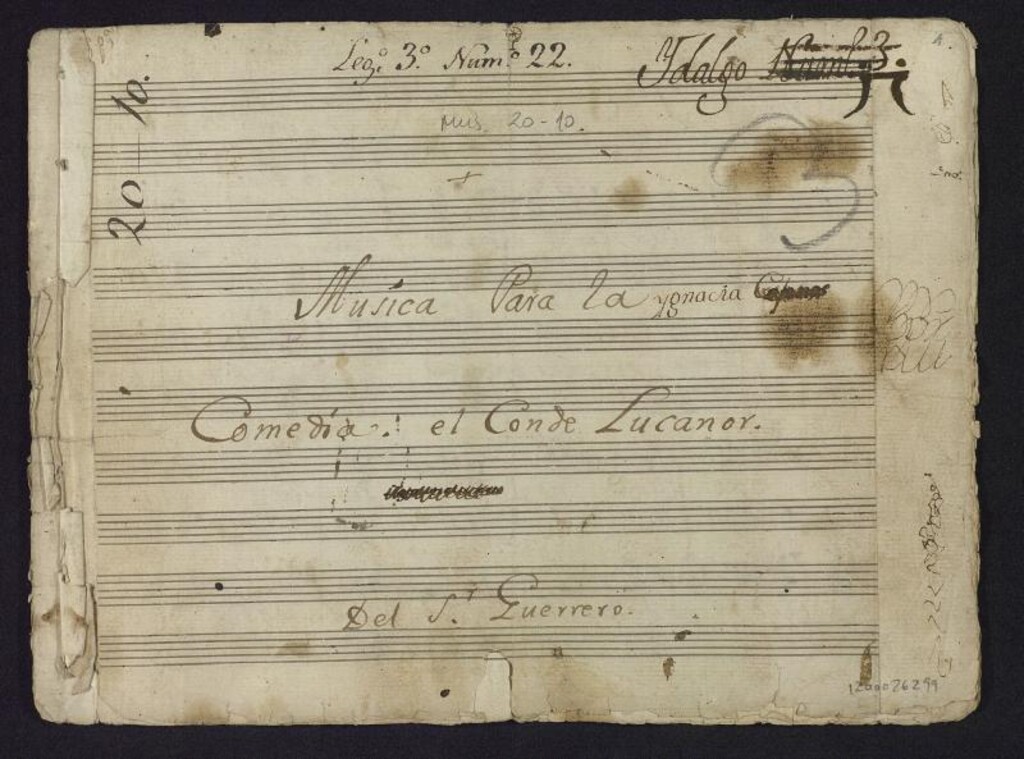 Leg.º 3.º Num.º 22.
Ydalgo
3.
20-10.
Mus. 20-10.
3
Musica Para la ygnacia
Comedia: el Conde Lucanor.
Del S.r Guerrero.
1200026299